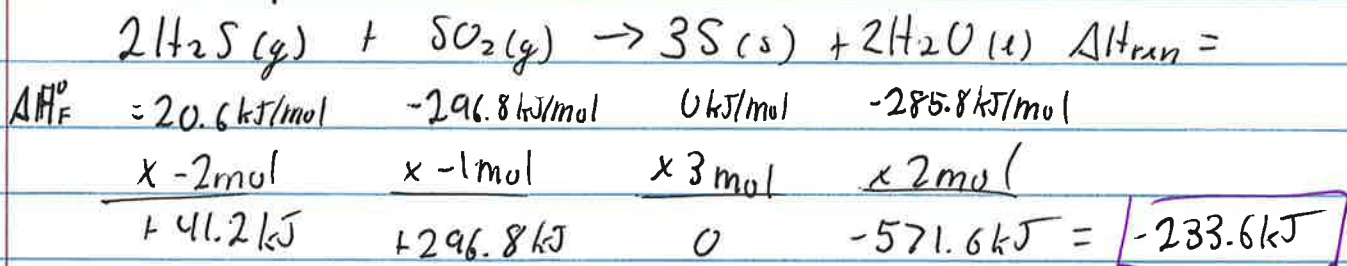 2H₂S (g) + SO₂ (g) → 3S (s) + 2H₂O (l) ΔHrxn =
ΔH°F = 20.6 kJ/mol -296.8 kJ/mol 0 kJ/mol -285.8 kJ/mol
x -2mol x -1mol x 3 mol x 2mol
+ 41.2 kJ +296.8 kJ 0 -571.6 kJ = -233.6 kJ